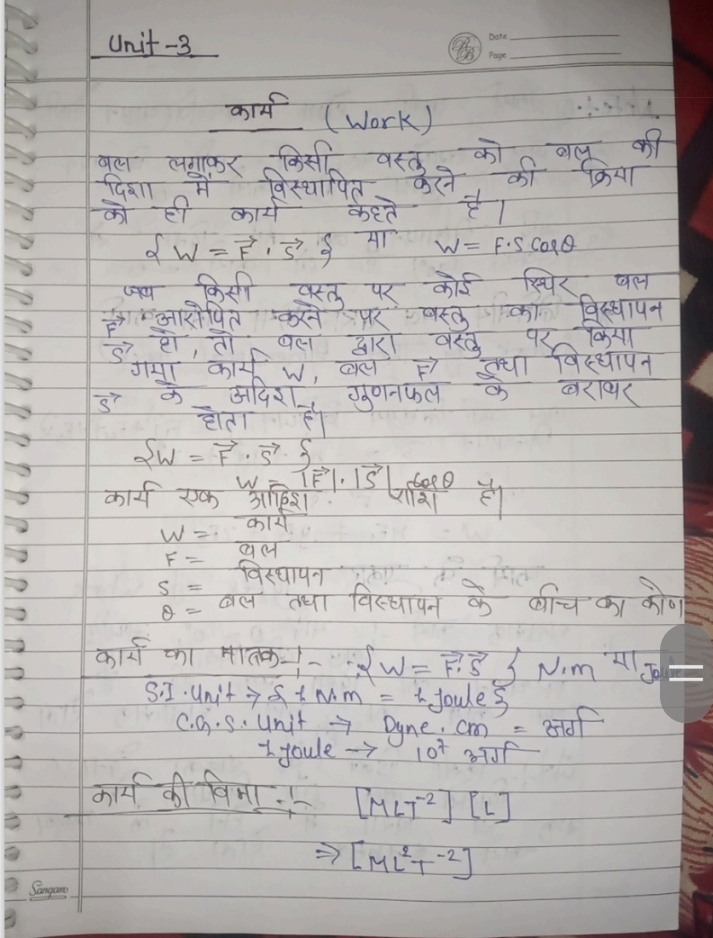 Unit-3
Date
Page
कार्य (Work)
बल लगाकर किसी वस्तु को बल की
दिशा में विस्थापित करने की क्रिया
को ही कार्य कहते है।
{ W = F⃗ . S⃗ } या W = F.S cosθ
जब किसी वस्तु पर कोई स्थिर बल
F⃗ आरोपित करने पर वस्तु का विस्थापन
S⃗ हो, तो बल द्वारा वस्तु पर किया
गया कार्य W, बल F⃗ तथा विस्थापन
S⃗ के अदिश गुणनफल के बराबर
होता है।
{W = F⃗ . S⃗ }
W = |F⃗|.|S⃗| cosθ
कार्य एक अदिश राशि है।
W = कार्य
F = बल
S = विस्थापन
θ = बल तथा विस्थापन के बीच का कोण
कार्य का मातक :- { W = F⃗.S⃗ } N.m या Joule
S.I. Unit → { 1 N.m = 1 Joule }
C.G.S. Unit → Dyne.cm = अर्ग
1 Joule → 10⁷ अर्ग
कार्य की विमा :- [MLT⁻²] [L]
⇒ [ML²T⁻²]
Sangam